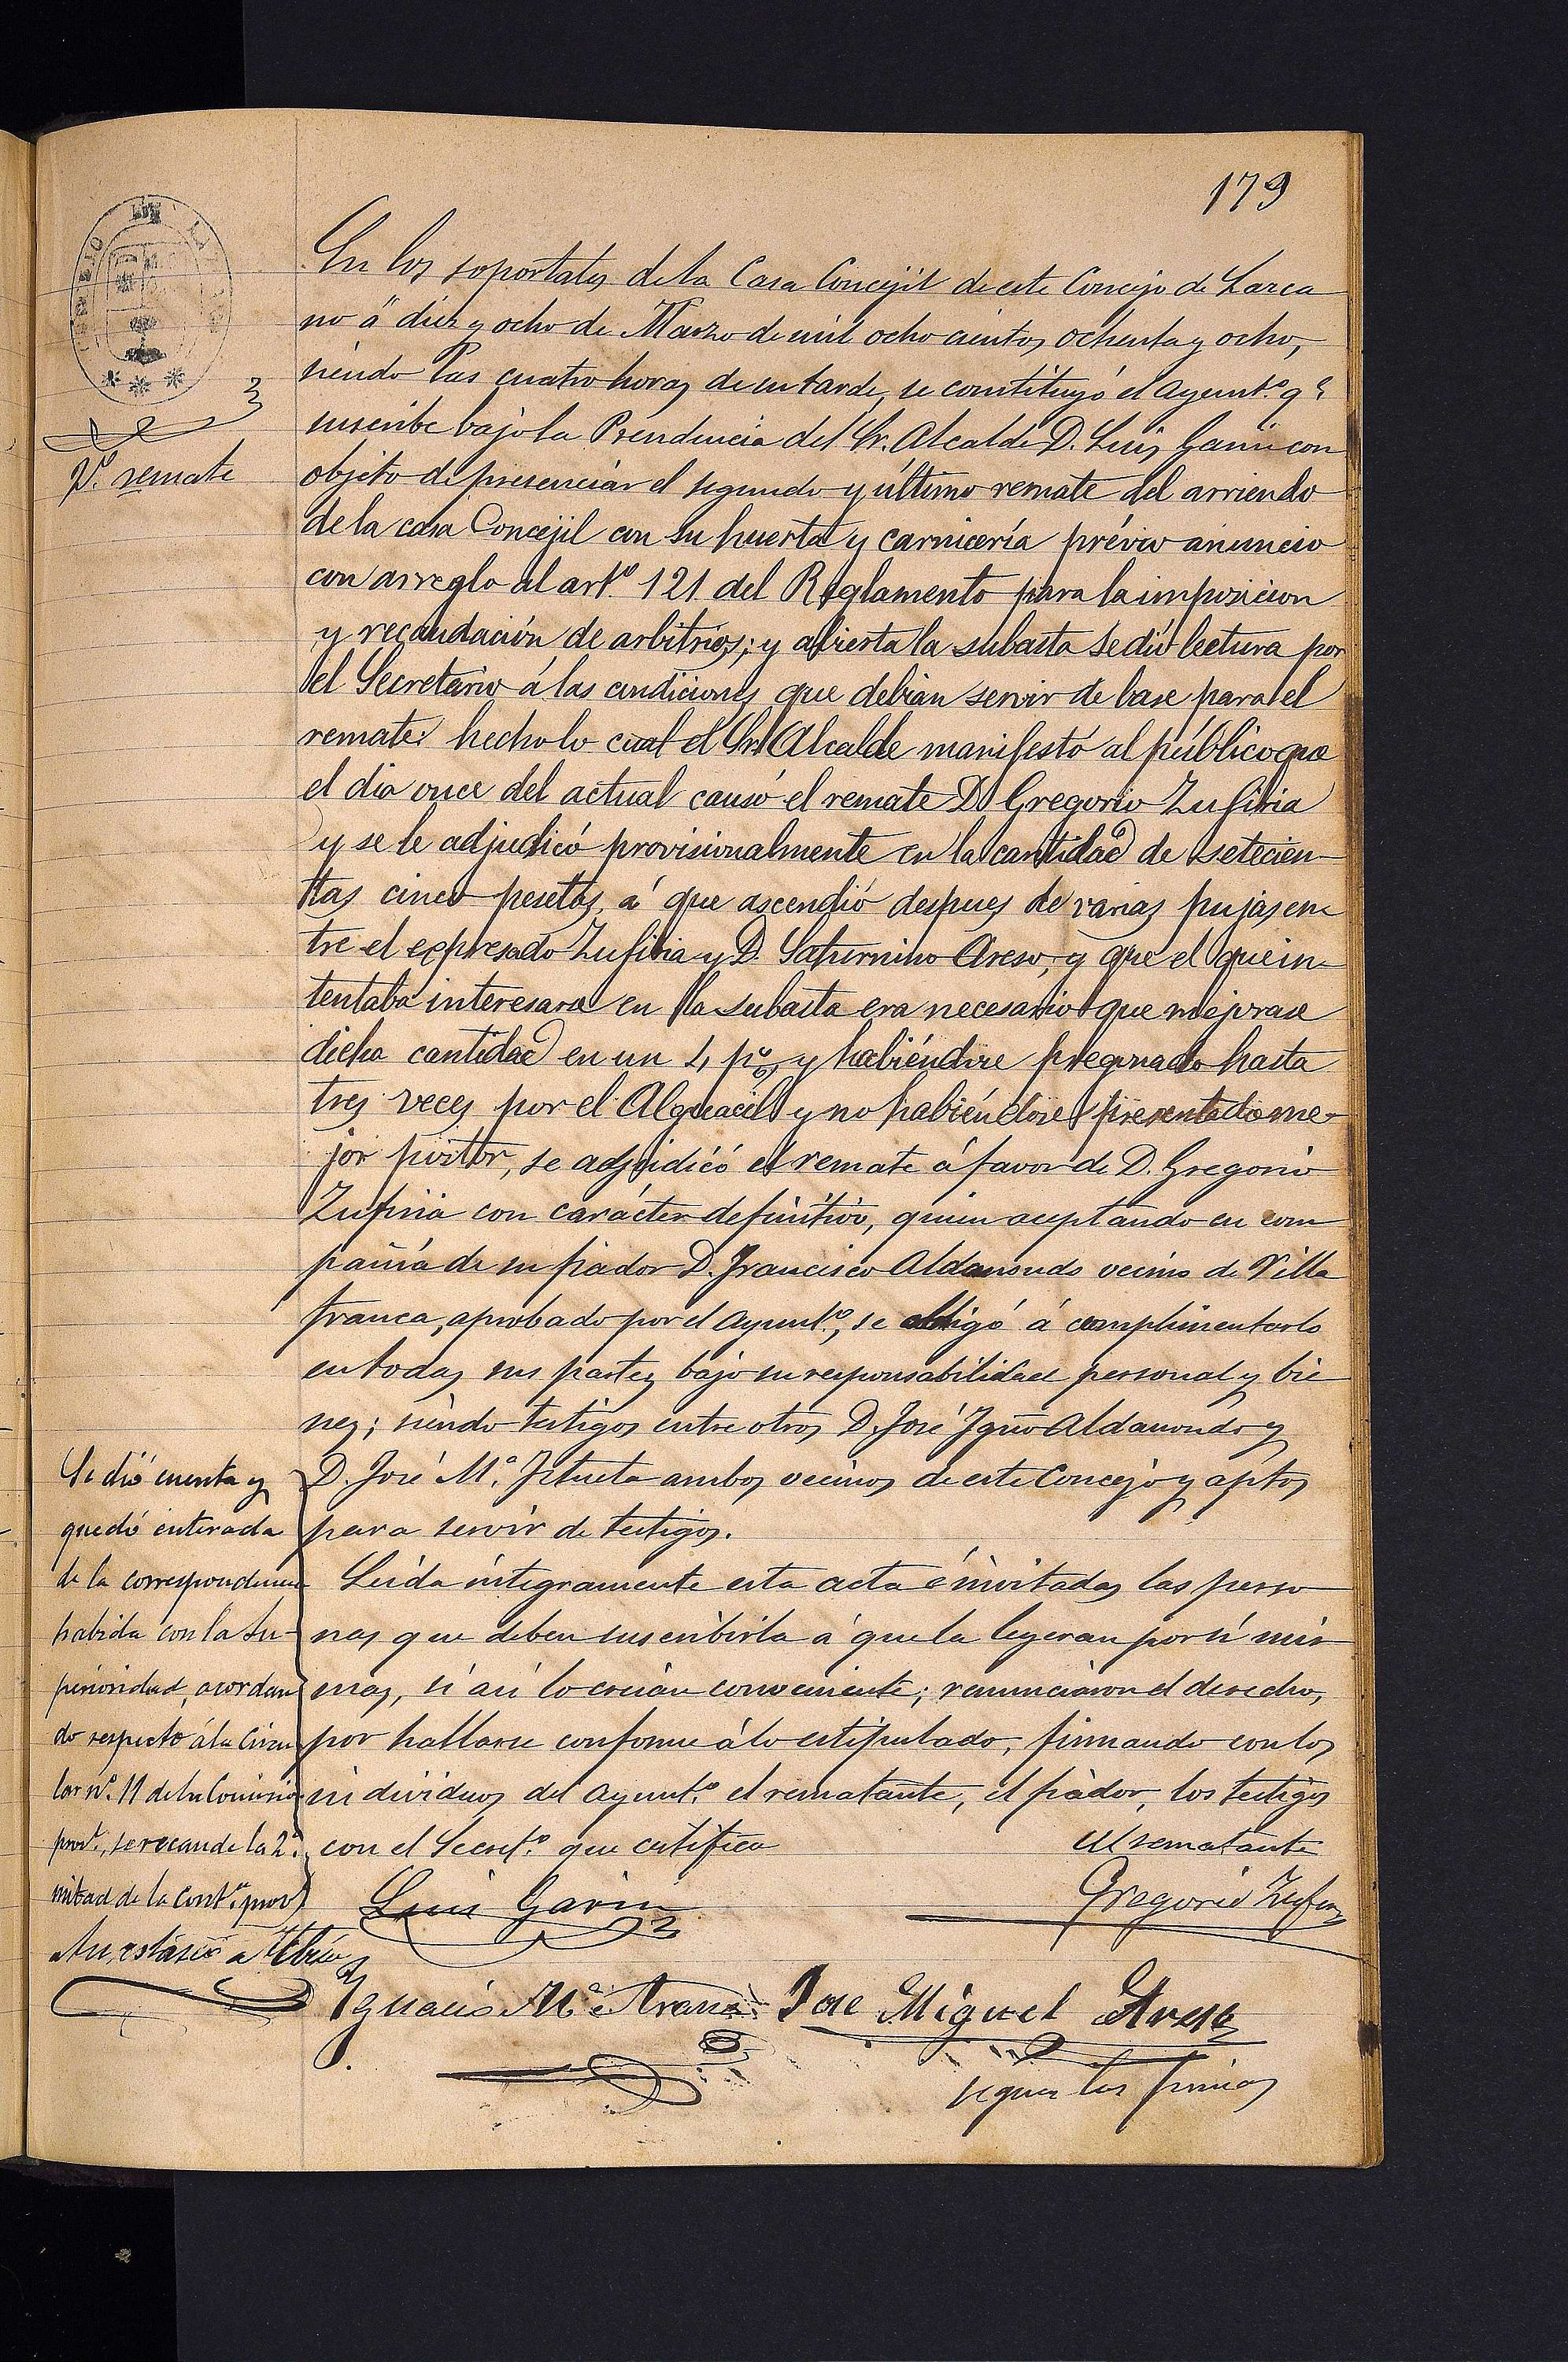 179
En los soportales de la Casa Concejil de este Concejo de Lazca
no á diez y ocho de Marzo de mil ocho cientos ochenta y ocho,
siendo las cuatro horas de su tarde, se constituyó el Ayuntº. qᵉ
suscribe bajo la Presidencia del Sr. Alcalde D. Luis Garin con
2º. remate
objeto de presenciar el segundo y último remate del arriendo
de la casa Concejil con su huerta y carnicería prévio anuncio
con arreglo al artº. 121 del Reglamento para la imposicion
y recaudación de arbitrios; y abierta la subasta se dió lectura por
el Secretario á las condiciones que debian servir de base para el
remate: hecho lo cual el Sr. Alcalde manifestó al público que
el dia once del actual causó el remate D. Gregorio Zufiria
y se le adjudicó provisionalmente en la cantidad de setecien-
tas cinco pesetas, á que ascendió despues de varias pujas en-
tre el expresado Zufiria y D. Saturnino Areso, y que el que in-
tentaba interesarse en la subasta era necesario que mejorase
dicha cantidad en un 4 p% y habiéndose pregonado hasta
tres veces por el Alguacil y no habiéndose presentado me-
jor postor, se adjudicó el remate á favor de D. Gregorio
Zufiria con carácter definitivo, quien aceptando en com
pañía de su fiador D. Francisco Aldamondo vecino de Villa
franca, aprobado por el Ayuntº., se obligó á complimentarlo
en todas sus partes bajo su responsabilidad personal y bie
nes; siendo testigos entre otros D. José Ignº Aldamondo y
D. José Mª. Iztueta ambos vecinos de este Concejo y aptos
para servir de testigos.
Leida íntegramente esta acta é invitadas las perso
nas que deben suscribirla á que la leyeran por sí mis
mas, si así lo creían conveniente; renunciaron el derecho,
por hallarse conforme á lo estipulado, firmando con los
individuos del Ayuntº. el rematante, el fiador, los testigos
con el Secretº. que certifica
Se dió cuenta y
quedó enterada
de la correspondencia
habida con la Su-
perioridad, acordan
do respecto á la Circu
lar nº. 11 de la Comision
provˡ., se recaude la 2ª.
mitad de la Contⁿ. provˡ
El rematante
Luis Garin
Gregorio Zufiria
Ignacio Mª Arana
Jose Miguel Areso
siguen las firmas